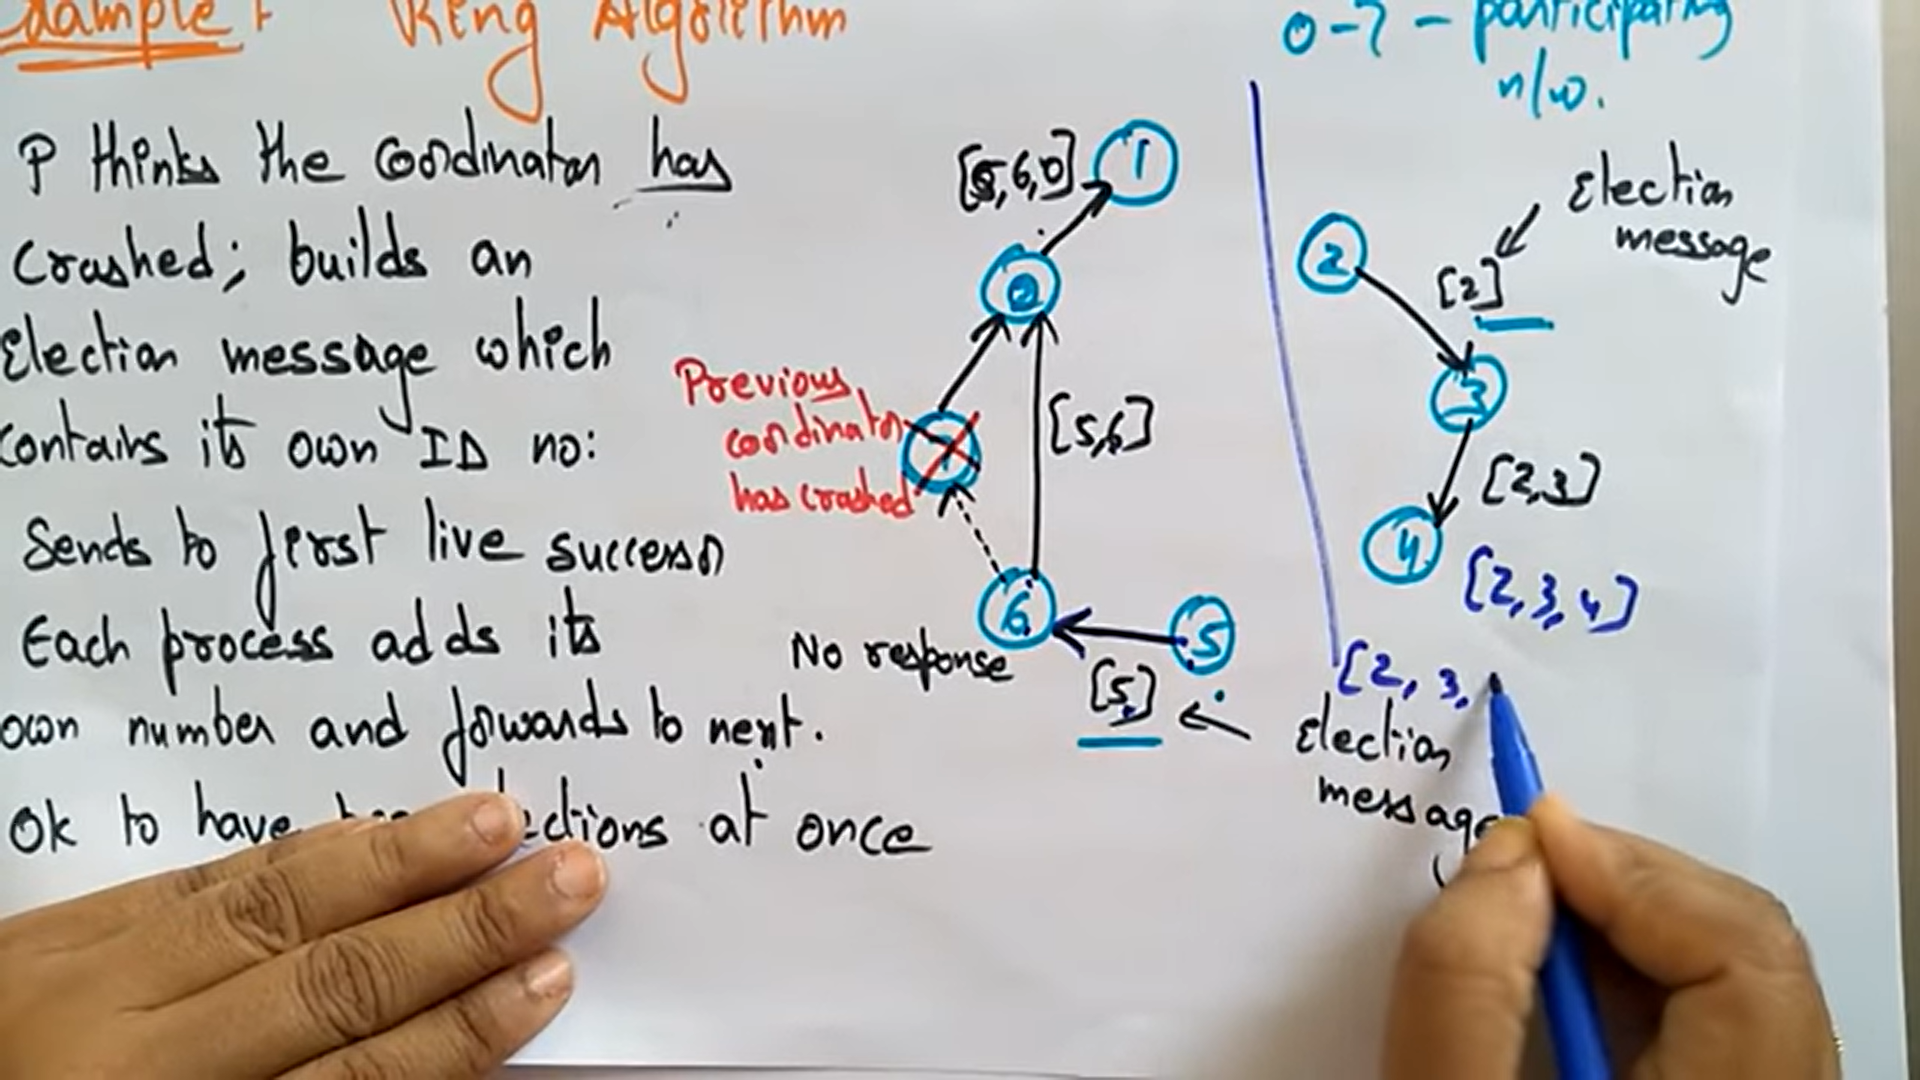 Example: Ring Algorithm
0-7 - participating
n/w.
P thinks the coordinator has
crashed; builds an
Election message which
contains its own ID no:
Sends to first live successr
Each process adds its
own number and forwards to next.
Ok to have elections at once
[5,6,0] 1
0
Previous
coordinator
has crashed
7
[5,6]
6
No response
5
[5]
Election
message
2
[2]
Election
message
3
[2,3]
4
[2,3,4]
[2, 3,